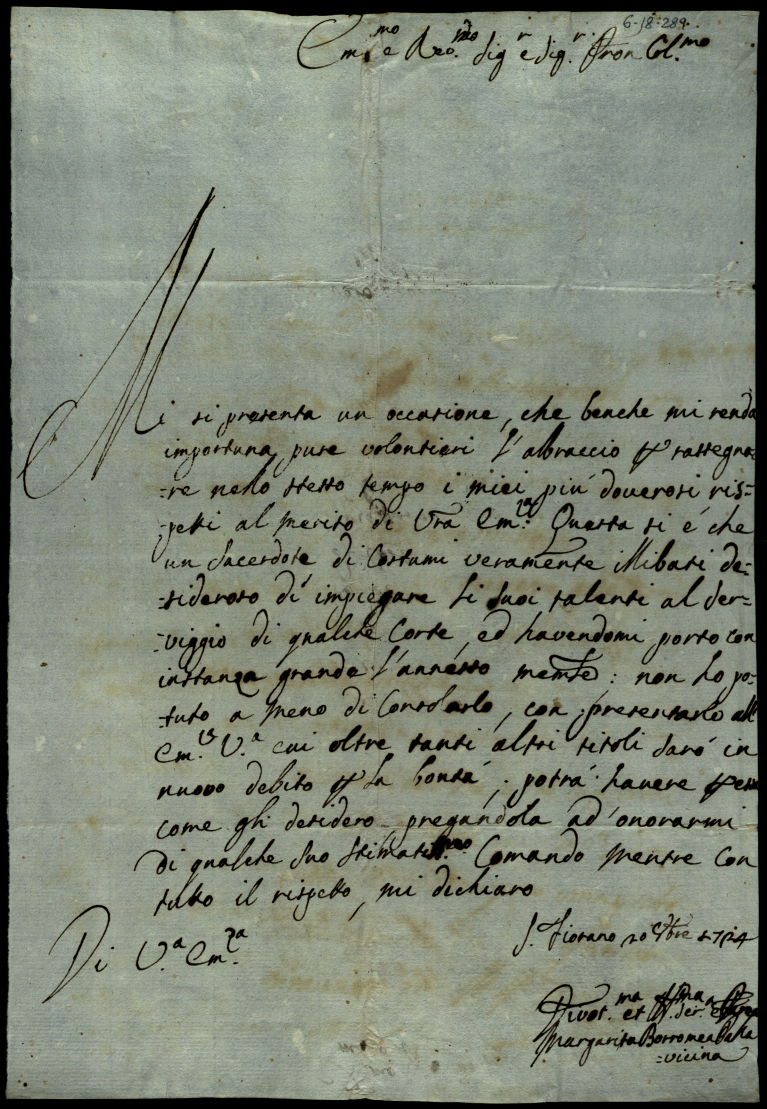 6-18-289.
Em.mo e Rev.mo Sig.r e Sig.r Pron Col.mo
Mi si presenta un occasione, che benche mi renda
importuna, pure volontieri l'abraccio per rassegna=
=re nello stesso tempo i miei più doverosi ris=
=petti al merito di Vra Em.za Questa si é che
un Sacerdote di Costumi veramente illibati de=
=sideroso di impiegare li suoi talenti al ser=
=viggio di qualche Corte, ed havendomi porto con
instanza grande l'annesso : non ho po=
=tuto a meno di Consolarlo, con presentarlo all
Em.za V.a cui oltre tanti altri titoli sarò in
nuovo debito per la bontà, potrà havere per esso
come gli desidero pregandola ad onorarmi
di qualche suo stimatiss.mo Comando mentre con
tutto il rispetto, mi dichiaro
Di V.a Em.za
S. Fiorano 20 1724
Divot.ma et ser.a
Margarita Borromea Palla
=vicina